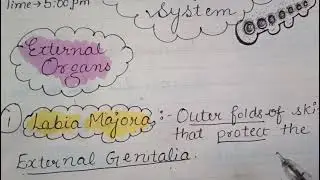 Time → 5:00 pm
System
External
Organs
① Labia Majora :- Outer folds of ski
that protect the
External Genitalia.